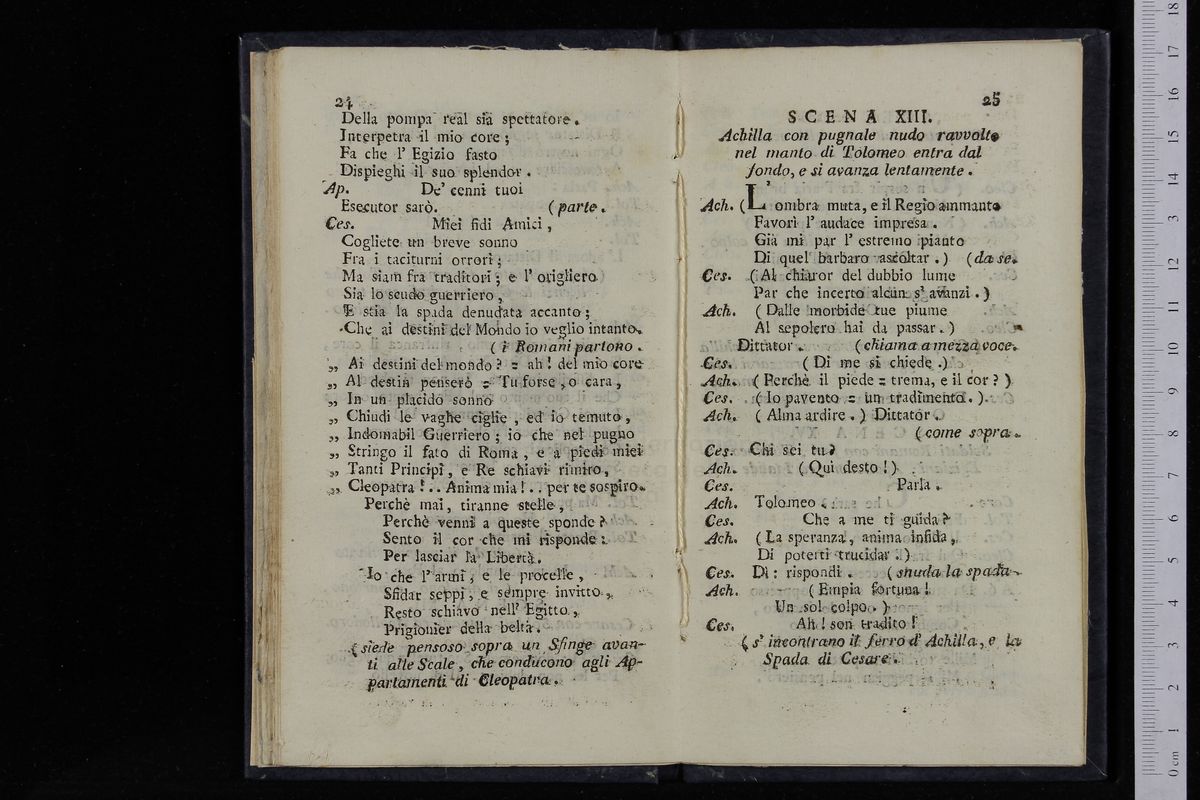 24
Della pompa real sia spettatore.
Interpetra il mio core;
Fa che l' Egizio fasto
Dispieghi il suo splendor.
Ap. De' cenni tuoi
Esecutor sarò. (parte.
Ces. Miei fidi Amici,
Cogliete un breve sonno
Fra i taciturni orrori;
Ma siam fra traditori; e l' origliero
Sia lo scudo guerriero,
E stia la spada denudata accanto;
Che ai destini del Mondo io veglio intanto.
(i Romani partono.
„ Ai destini del mondo? = ah! del mio core
„ Al destin penserò = Tu forse, o cara,
„ In un placido sonno
„ Chiudi le vaghe ciglie, ed io temuto,
„ Indomabil Guerriero; io che nel pugno
„ Stringo il fato di Roma, e a piedi miei
„ Tanti Principi, e Re schiavi rimiro,
„ Cleopatra!.. Anima mia!.. per te sospiro.
Perchè mai, tiranne stelle,
Perchè venni a queste sponde?
Sento il cor che mi risponde:
Per lasciar la Libertà.
Io che l'armi, e le procelle,
Sfidar seppi, e sempre invitto,
Resto schiavo nell' Egitto,
Prigionier della beltà.
(siede pensoso sopra un Sfinge avan-
ti alle Scale, che conducono agli Ap-
partamenti di Cleopatra.
25
SCENA XIII.
Achilla con pugnale nudo ravvolto
nel manto di Tolomeo entra dal
fondo, e si avanza lentamente.
Ach. (L' ombra muta, e il Regio ammanto
Favorì l' audace impresa.
Già mi par l' estremo pianto
Di quel barbaro ascoltar.) (da se.
Ces. (Al chiaror del dubbio lume
Par che incerto alcun s' avanzi.)
Ach. (Dalle morbide tue piume
Al sepolcro hai da passar.)
Dittator. (chiama a mezza voce.
Ces. (Di me si chiede.)
Ach. (Perchè il piede = trema, e il cor?)
Ces. (Io pavento = un tradimento.)
Ach. (Alma ardire.) Dittator.
(come sopra.
Ces. Chi sei tu?
Ach. (Qui desto!)
Ces. Parla.
Ach. Tolomeo.
Ces. Che a me ti guida?
Ach. (La speranza, anima infida,
Di poterti trucidar.)
Ces. Di: rispondi. (snuda la spada.
Ach. (Empia fortuna!
Un sol colpo.)
Ces. Ah! son tradito!
(s' incontrano il ferro d' Achilla, e la
Spada di Cesare.